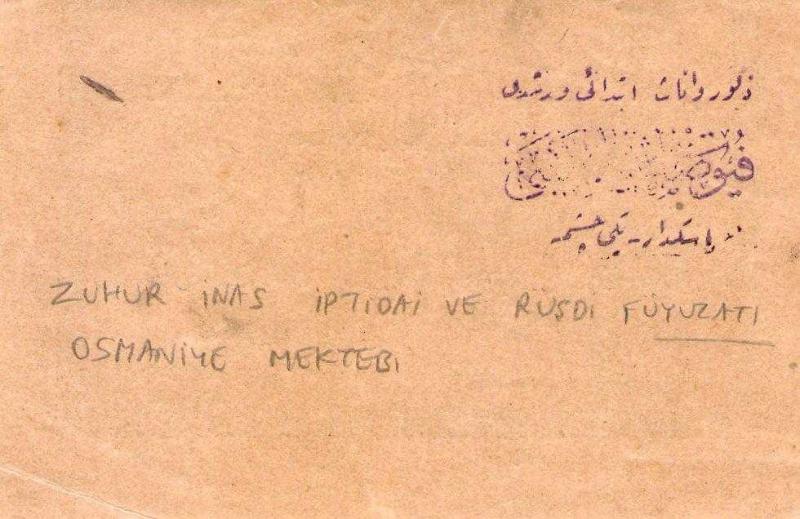 ذكور واناث ابتدائى و رشدى
اسكدار - يكى چشمه
ZUHUR İNAS İPTİDAİ VE RÜŞDİ FÜYUZATI
OSMANİYE MEKTEBİ